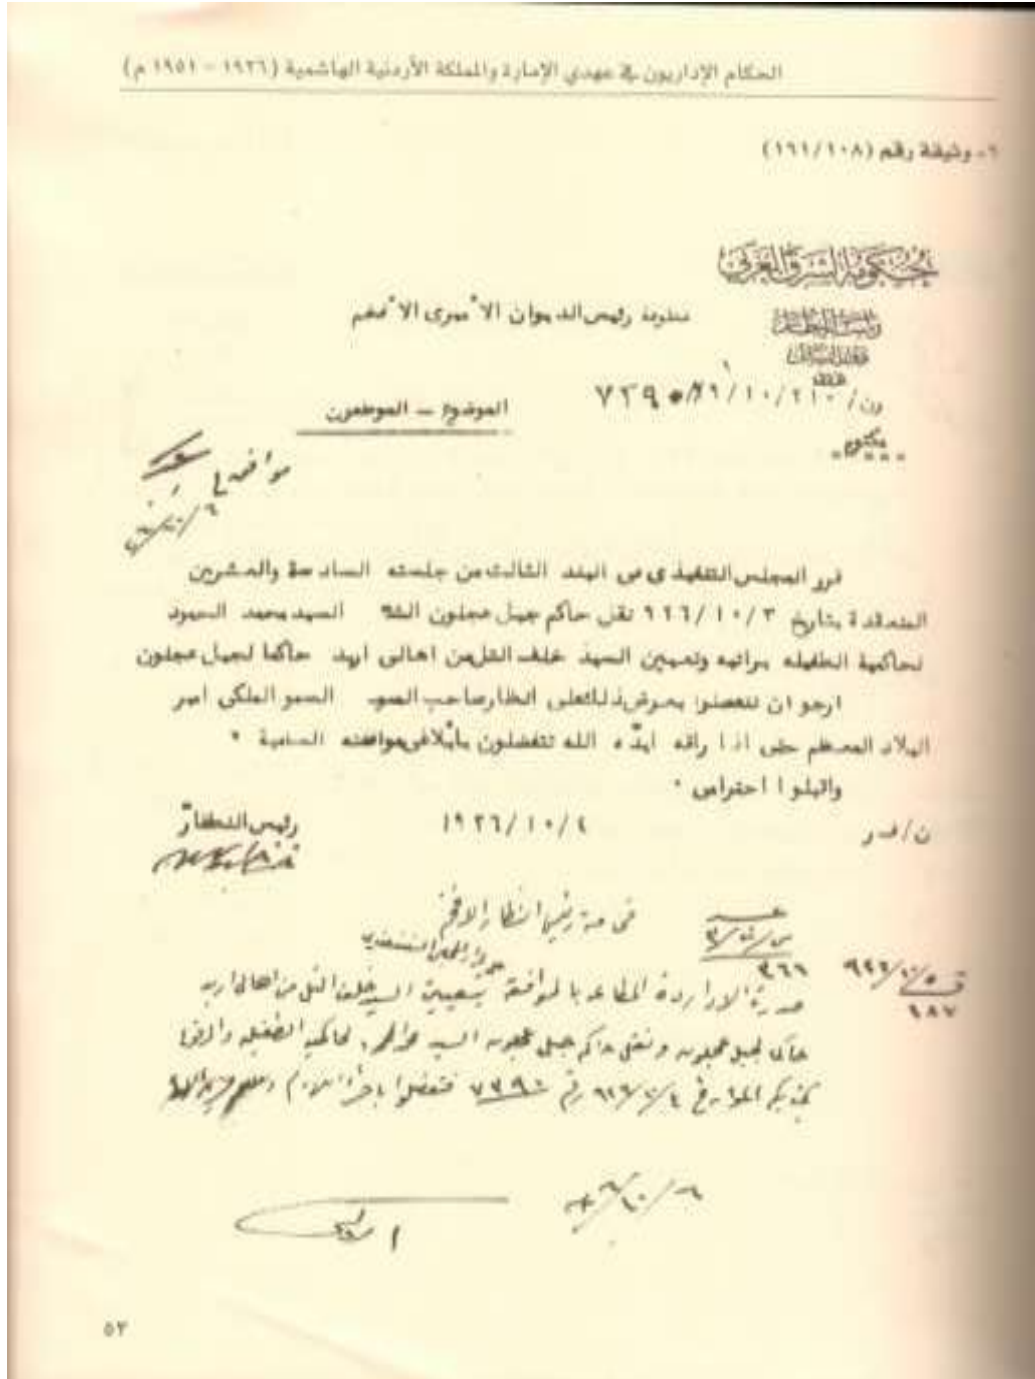 الحكام الإداريون في عهدي الإمارة والمملكة الأردنية الهاشمية (١٩٢٦ - ١٩٥١ م)
٦- وثيقة رقم (١٦١/١٠٨)
حكومة الشرق العربي
فخامة رئيس الديوان الاميري الافخم
ون/٢١٠/١٠/٢٦/٧٣٩٥
مكتوم
الموضوع – الموظفون
موافق
٢٦/١٠/٦
قرر المجلس التنفيذى من البند الثالث من جلسته السادسة والعشرين
المنعقدة بتاريخ ٩٢٦/١٠/٣ نقل حاكم جبل عجلون السيد محمد الحمود
لحاكمية الطفيله براتبه وتعيين السيد خلف التل من اهالى اربد حاكما لجبل عجلون
ارجو ان تتفضلوا بعرض ذلك على انظار صاحب السمو الملكى امير
البلاد المعظم حتى اذا راقه ايده الله تتفضلون بابلاغى موافقته السامية ٠
واقبلوا احترامى ٠
رئيس النظار
١٩٢٦/١٠/٤
ن/
فخامة رئيس النظار الافخم
٣٦٦
٩٢٦/١٠/٥
٦٨٧
صدرت الارادة المطاعة بالموافقة بتعيين السيد خلف التل من اهالى اربد
حاكما لجبل عجلون ونقل حاكم جبل عجلون السيد لحاكمية الطفيله
المؤرخ ٩٢٦/١٠/٤ رقم ٧٣٩٥ فتفضلوا باجراء
٢٦/١٠/٦
٥٣